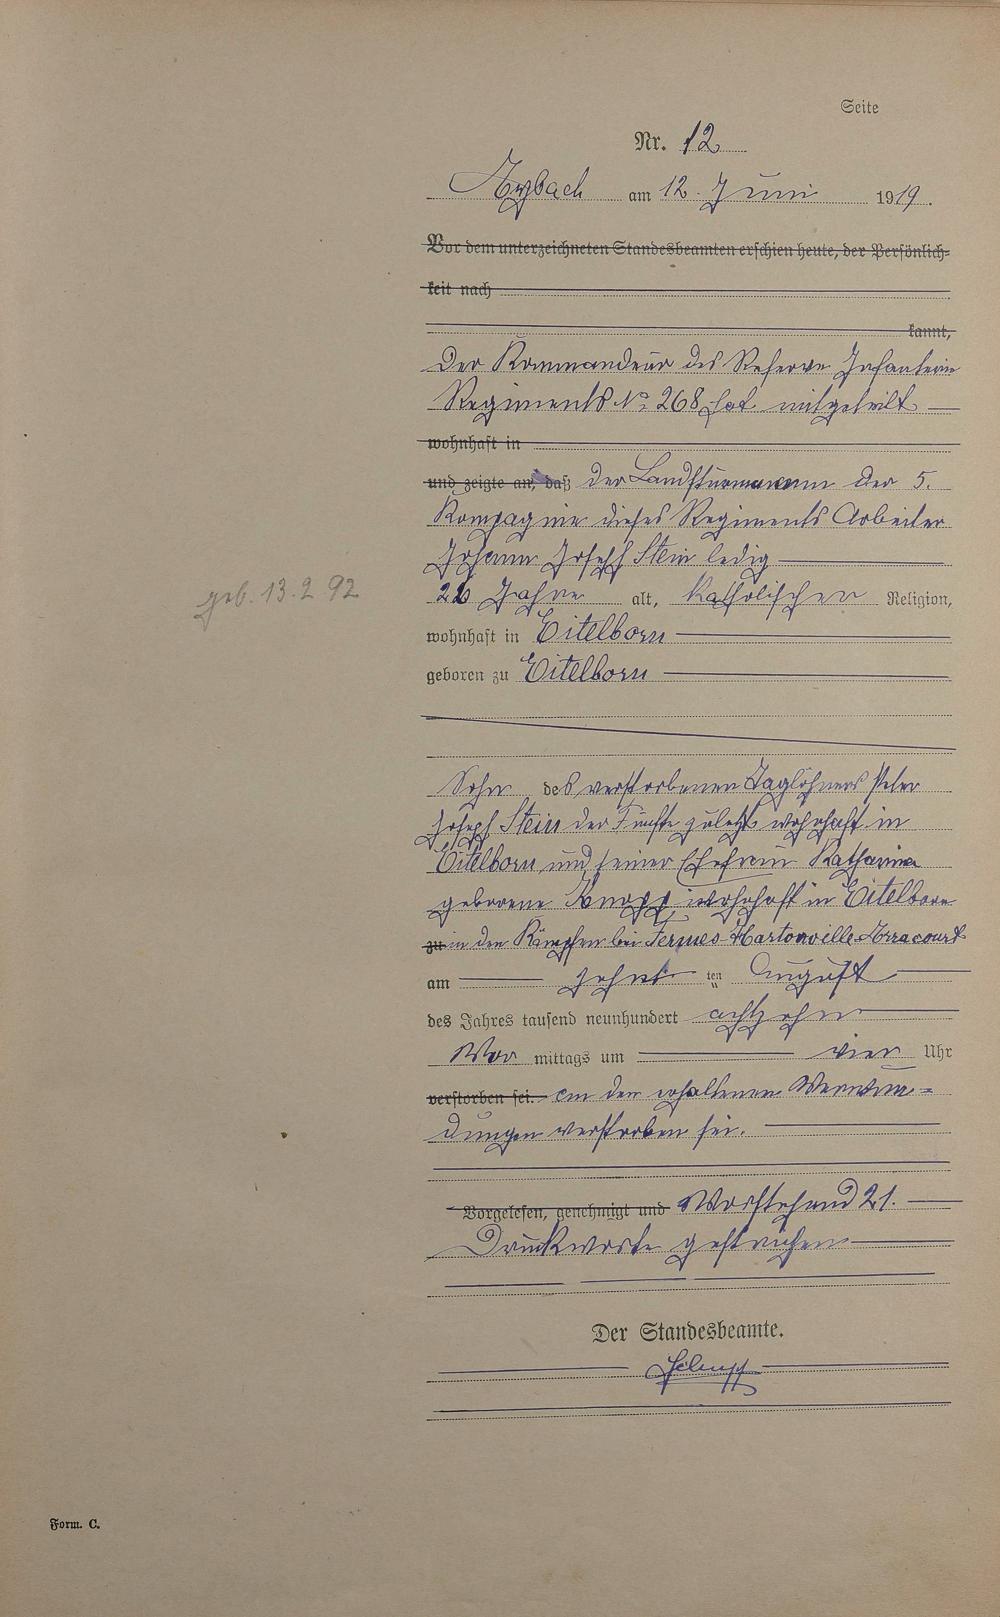 Seite
Nr. 12
Arzbach am 12. Juni 1919.
Vor dem unterzeichneten Standesbeamten erschien heute, der Persönlich-
keit nach
kannt,
Der Kommandeur des Reserve Infanterie
Regiments No 268 hat mitgeteilt
wohnhaft in
und zeigte an, daß der Landsturmmann der 5.
Kompagnie dieses Regiments Arbeiter
Johann Joseph Stein ledig
geb. 13.2 92
26 Jahre alt, katholischer Religion,
wohnhaft in Eitelborn
geboren zu Eitelborn
Sohn des verstorbenen Taglöhners Peter
Joseph Stein der Fünfte zuletzt wohnhaft in
Eitelborn und seiner Ehefrau Katharina
geborene Knopp wohnhaft in Eitelborn
zu in den Kämpfen bei Fermes-Hartonville-Arracourt
am zehnten August
des Jahres tausend neunhundert achtzehn
Vor mittags um vier Uhr
verstorben sei. an den erhaltenen Verwun-
dungen verstorben sei.
Vorgelesen, genehmigt und Vorstehend 21.
Druckworte gestrichen
Der Standesbeamte.
Form. C.